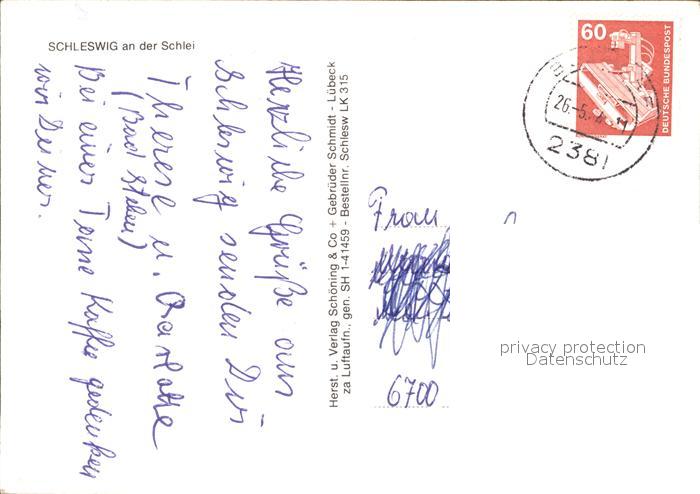 SCHLESWIG an der Schlei
Herzliche Grüße aus
Schleswig senden Dir
Therese u.
(Bad Steben)
Bei einer Tasse Kaffee gedenken
wir Deiner.
Herst. u. Verlag Schöning & Co + Gebrüder Schmidt - Lübeck
za Luftaufn., gen. SH 1-41459 - Bestellnr. Schlesw LK 315
60
DEUTSCHE BUNDESPOST
26.-5.
2381
Frau
6700
privacy protection
Datenschutz